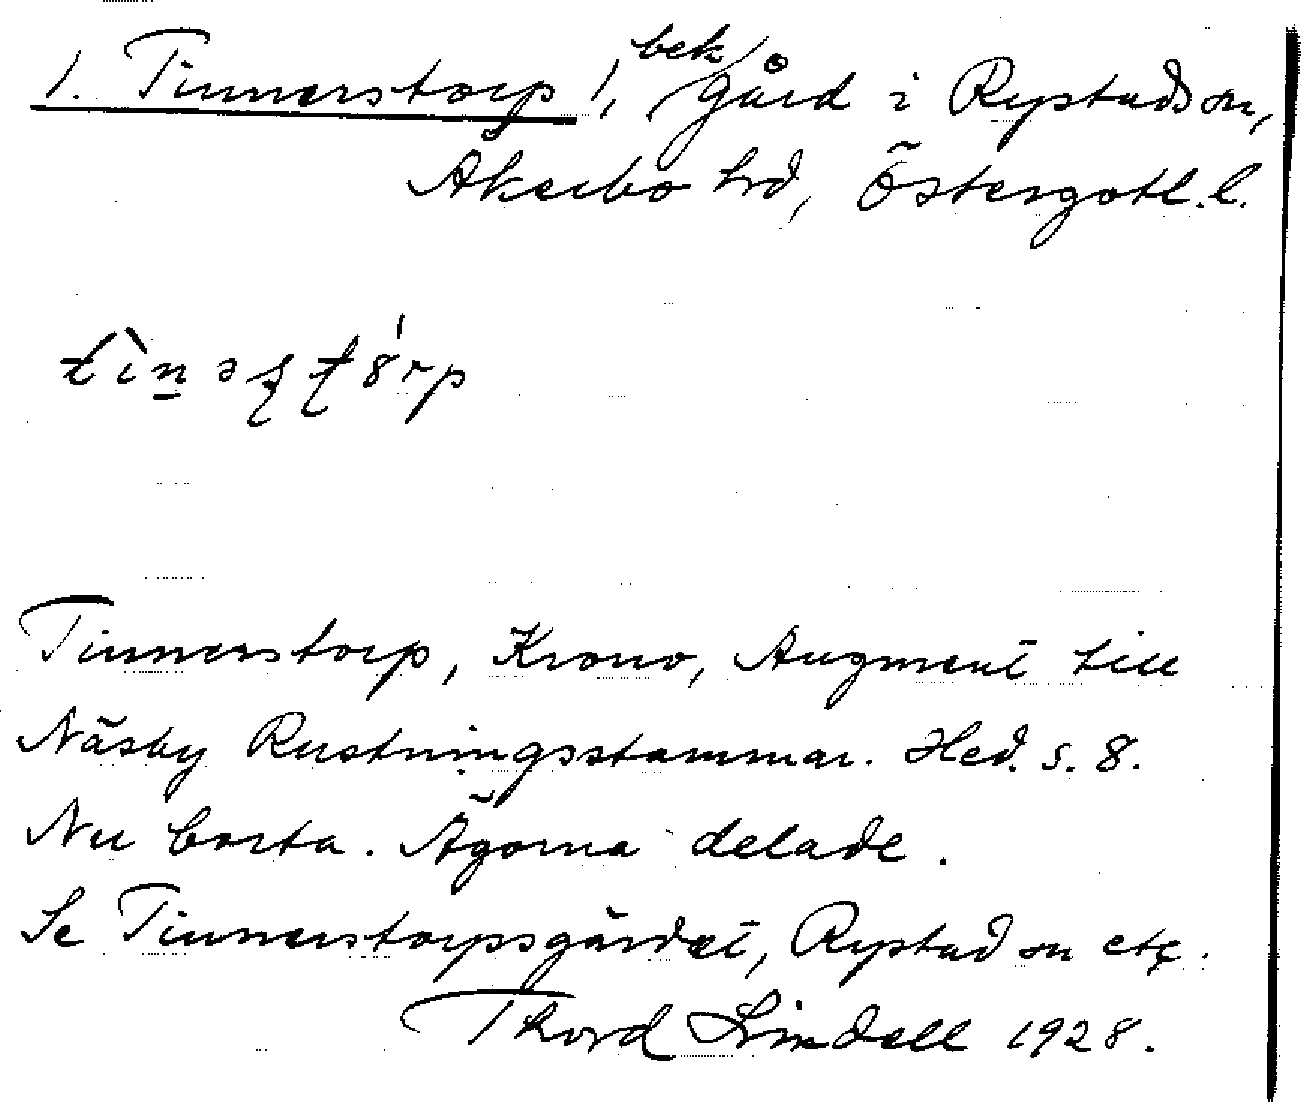 1. Tinnerstorp 1, bek gård i Rystads sn,
Åkerbo hrd, Östergötl. l.
tìnəʂʈ8́rp
Tinnerstorp, Krono, Augment till
Näsby Rustningsstammar. Hed. s. 8.
Nu borta. Ägorna delade.
Se Tinnerstorpsgärdet, Rystad sn etc.
Thord Lindell 1928.